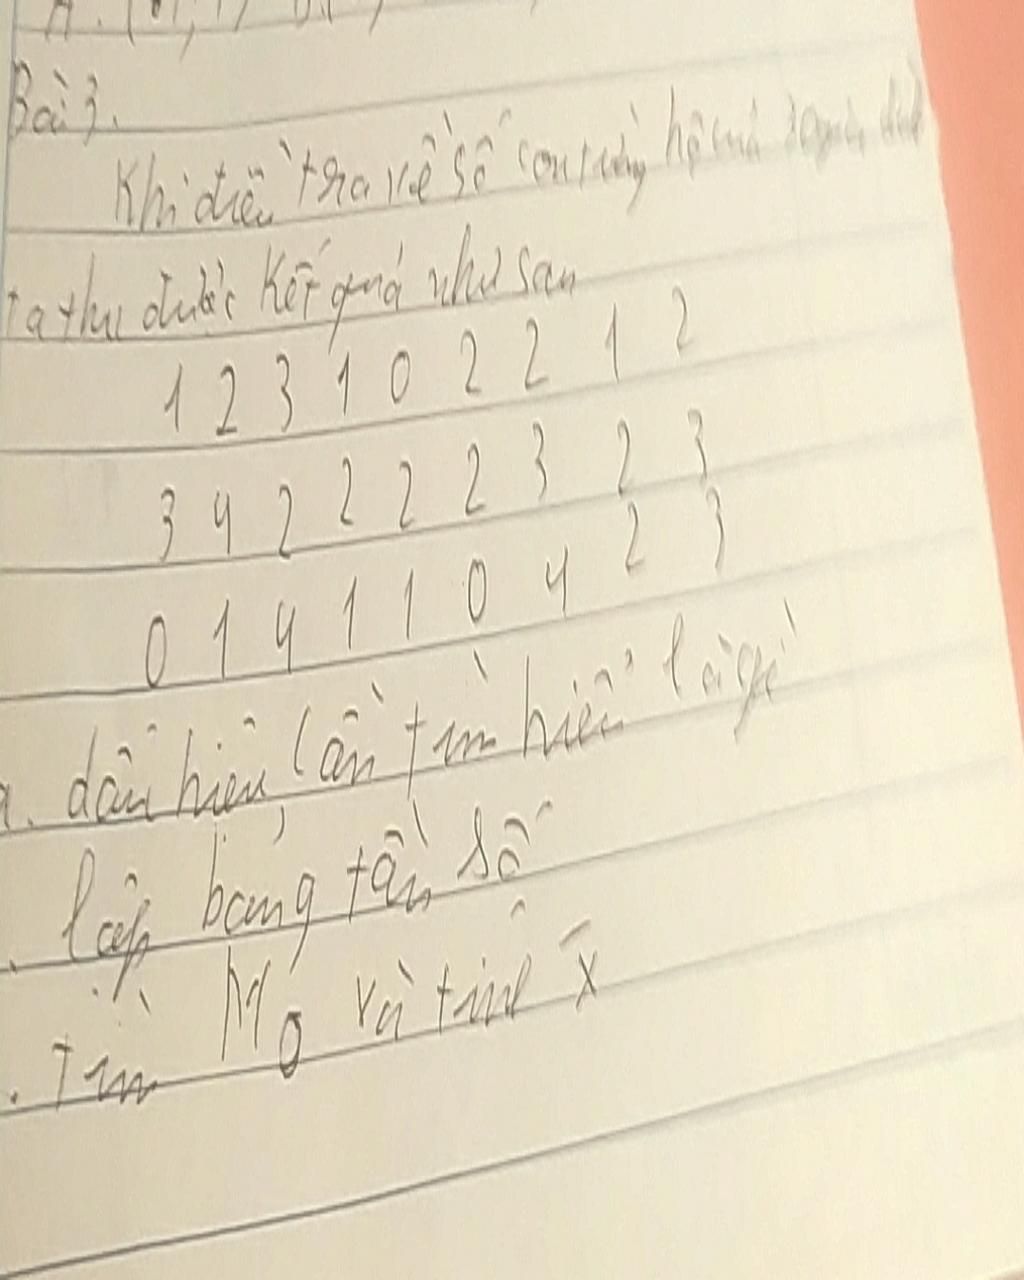 Bài 3.
Khi điều tra về số con từng hộ của 30 gia đình
ta thu được kết quả như sau
1 2 3 1 0 2 2 1 2
3 4 2 2 2 2 3 2 3
0 1 4 1 1 0 4 2 3
a. dấu hiệu cần tìm hiểu là gì
. lập bảng tần số
. Tìm M0 và tính x̄